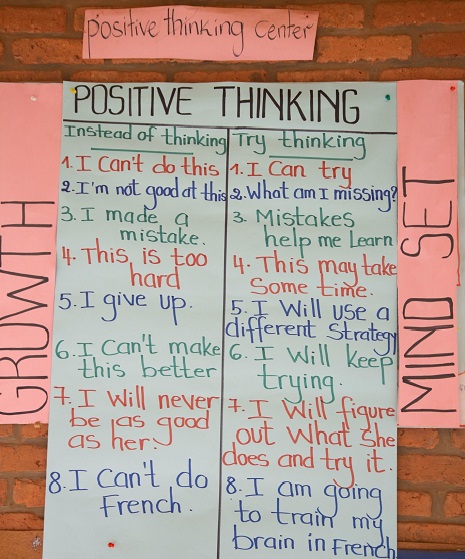 positive thinking center
POSITIVE THINKING
GROWTH
MIND SET
Instead of thinking
1. I Can't do this
2. I'm not good at this
3. I made a
mistake.
4. This is too
hard
5. I give up.
6. I Can't make
this better
7. I Will never
be as good
as her.
8. I Can't do
French.
Try thinking
1. I Can try
2. What am I missing?
3. Mistakes
help me Learn
4. This may take
Some time.
5. I Will use a
different Strategy
6. I Will keep
trying.
7. I Will figure
out What She
does and try it.
8. I am going
to train my
brain in French